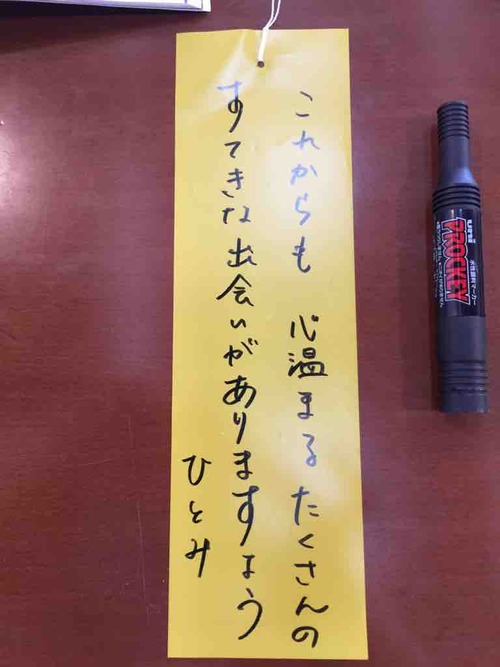 これからも 心温まる たくさんの
すてきな出会いがありますよう
ひとみ
PROCKEY